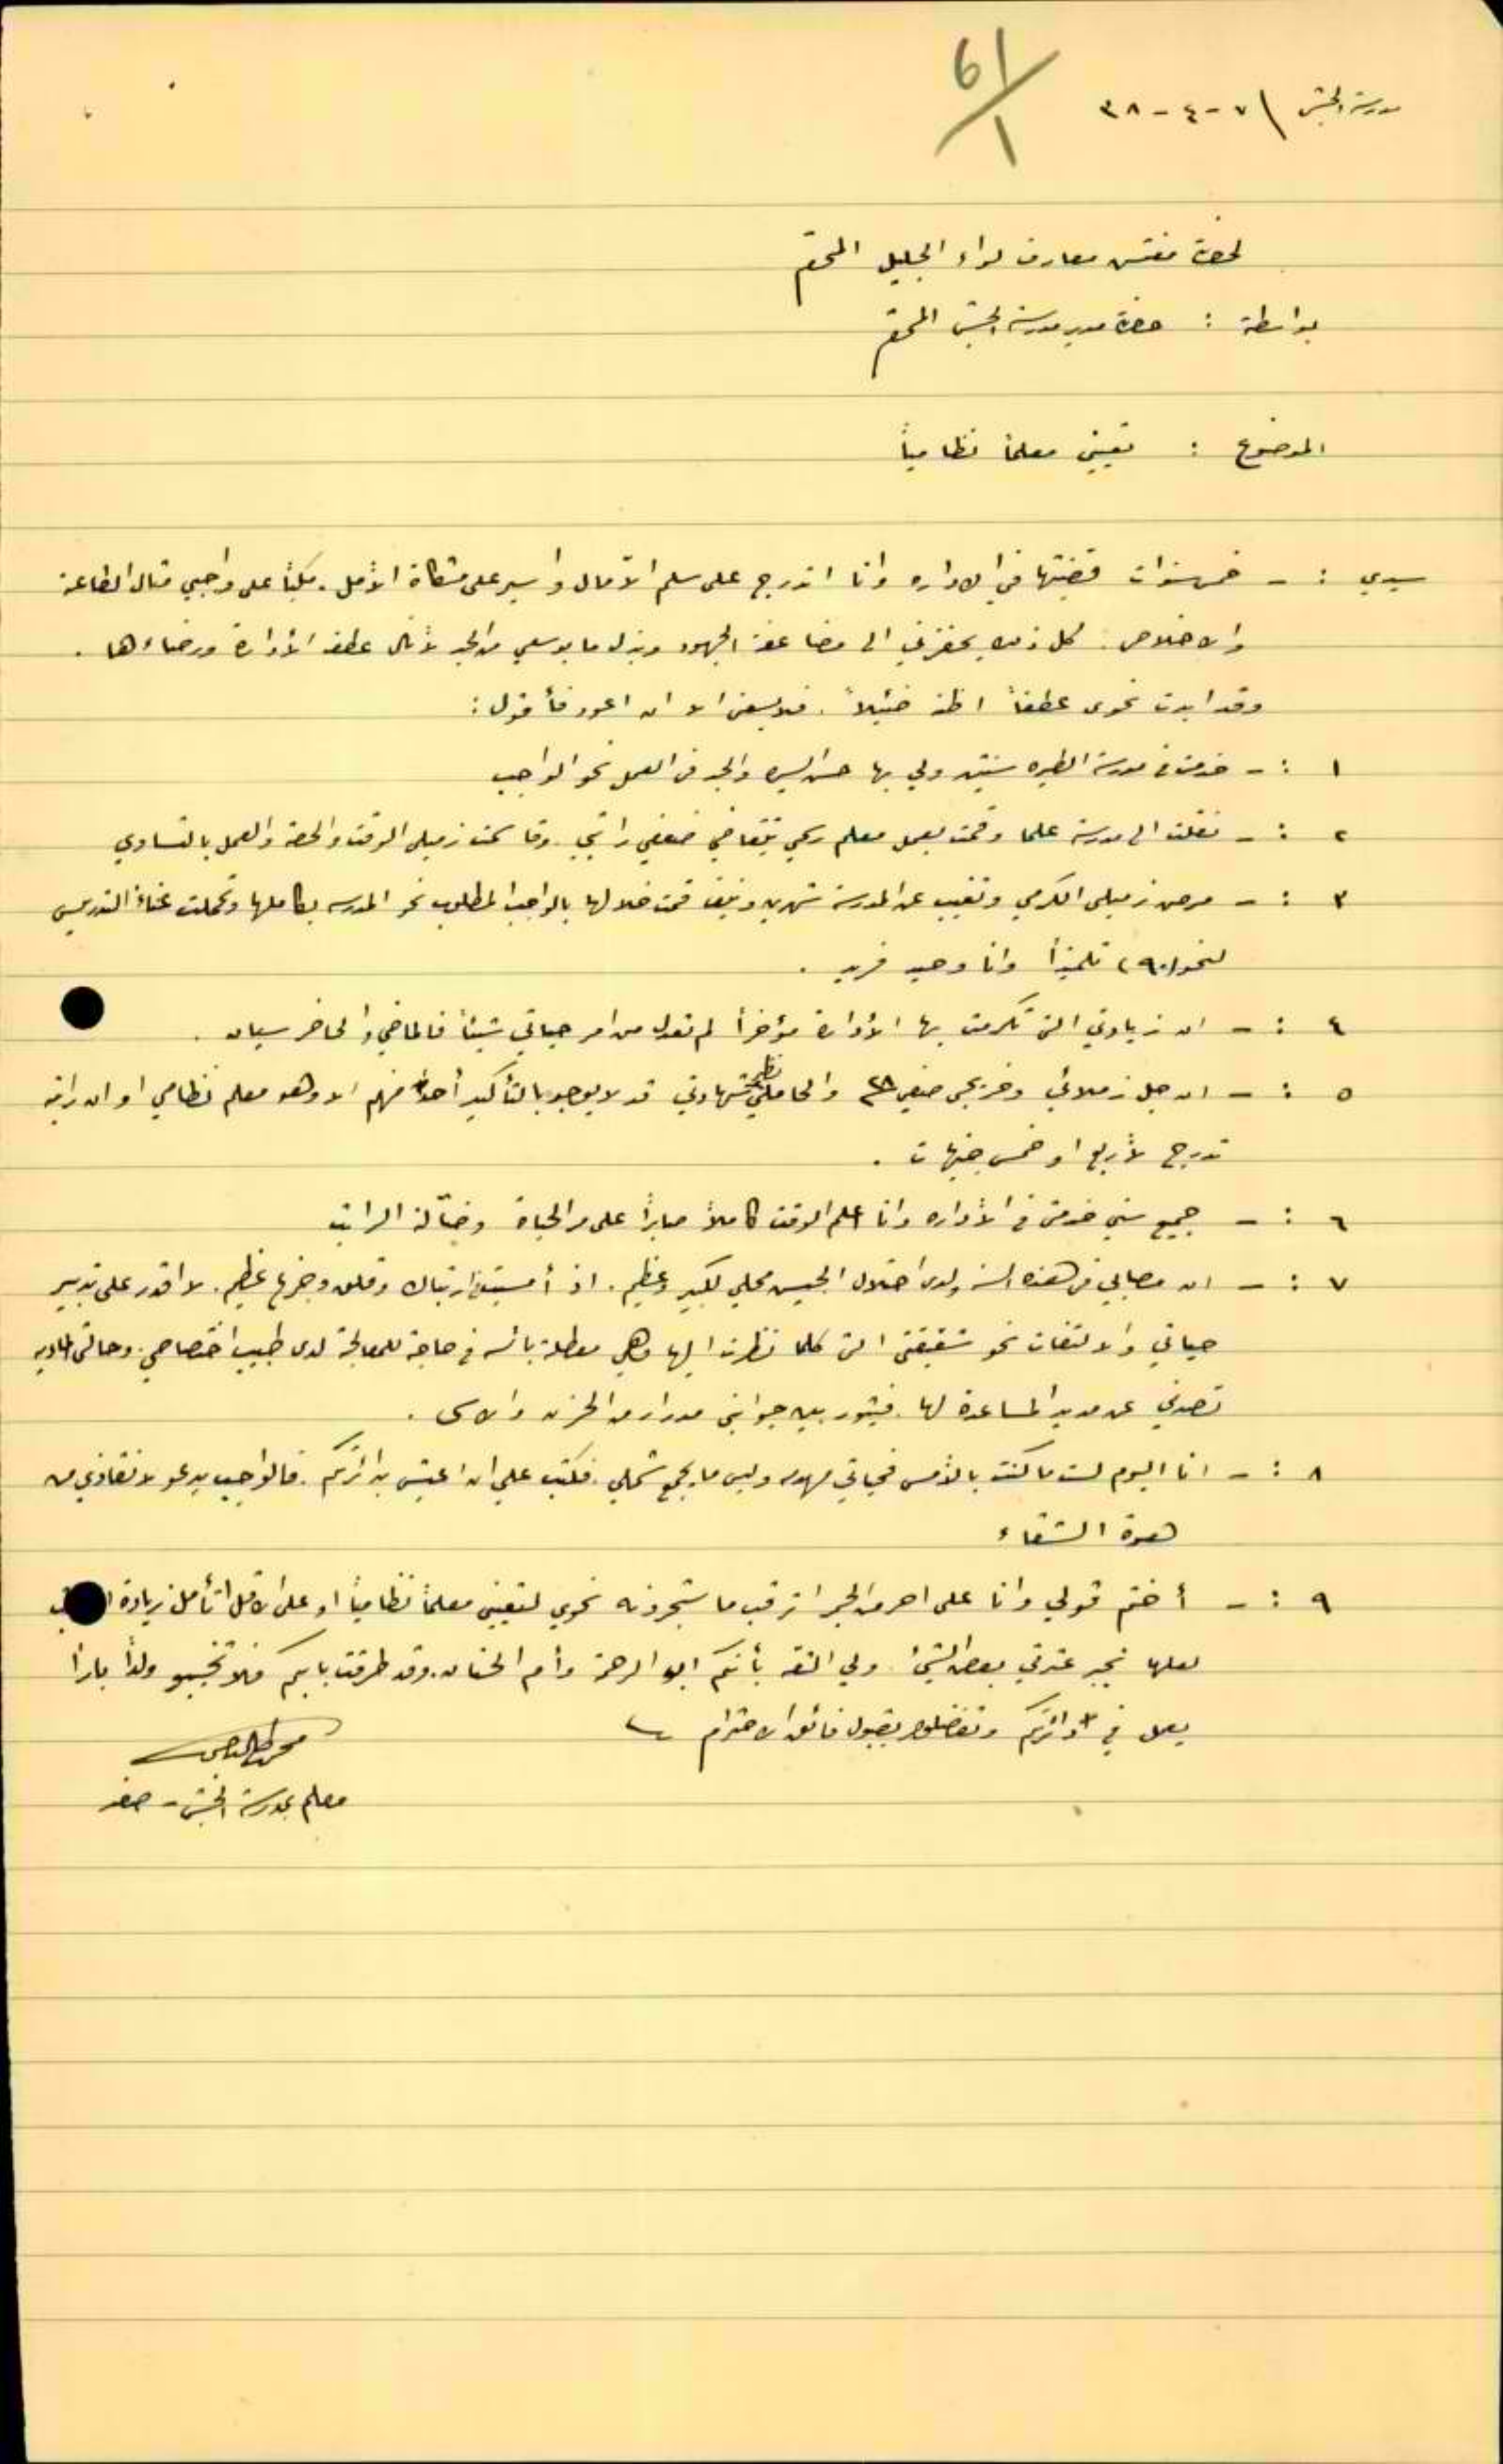 61/1
مدرسة الجش ٧-٤-٣٨
لحضرة مفتش معارف لواء الجليل المحترم
بواسطة : حضرة مدير مدرسة الجش المحترم
الموضوع : تعيين معلماً نظامياً
سيدي : - خمس سنوات قضيتها في الاداره وانا اتدرج على سلم الآمال واسير على مشكاة الأمل. مكباً على واجبي مثال الطاعة
والاخلاص. كل ذلك يحفزني الى مضاعفة الجهود وبذل ما بوسعي من الجد لأنال عطف الأدارة ورضاءها .
وقد ابدت نحوي عطفاً اظنه ضئيلاً. فلا يسعني الا ان اعود فأقول :
١ : - خدمت في مدرسة الطيره سنتين ولي بها حسن السيره والجد في العمل نحو الواجب
٢ : - نقلت الى مدرسة علما وقمت بعمل معلم رسمي يتقاضى ضعفي راتبي. وقاسمت زميلي الوقت والحصة والعمل بالتساوي
٣ : - مرض زميلي الكرمي وتغيب عن المدرسة شهرين ونيف قمت خلالها بالواجب المطلوب نحو المدرسه بكاملها وتحملت عناء التدريس
لنحو (٩٠) تلميذاً وانا وحيد فريد .
٤ : - ان زيادتي التي تكرمت بها الأدارة مؤخراً لم تعدل من امر حياتي شيئاً فالماضي والحاضر سيان .
٥ : - ان جل زملائي وخريجي صفي والحاملي نظير شهادتي قد لا يوجد بالتأكيد أحداً منهم الا وهو معلم نظامي او ان راتبه
تدرج لأربع او خمس جنيهات .
٦ : - جميع سني خدمتي في الأداره وانا اعلم الوقت كاملاً صابراً على مر الحياة وضآلة الراتب
٧ : - ان مصابي في هذه السنة ولدى احتلال الجيش محلي لكبير وعظيم. اذ أمسيت في ارتباك وقلق وجزع عظيم. لا اقدر على تدبير
حياتي والالتفات نحو شقيقتي التي كلما نظرت اليها وهي معطلة بائسه في حاجة للمعالجة لدى طبيب اختصاصي. وحالتي الماديه
تصدني عن مد يد المساعدة لها. فيثور بين جوانحي مدرار من الحزن والاسى .
٨ : - انا اليوم لست ما كنت بالأمس فحياتي مهدده وليس ما يجمع شملي. فكتب علي ان اعيش بدائرتكم. فالواجب يدعو لانقاذي من
هوة الشقاء
٩ : - أختم قولي وانا على احر من الجمر اترقب ما ستجرونه نحوي لتعيين معلماً نظامياً او على الاقل اتأمل زيادة
لعلها تجبر عثرتي بعض الشيء. ولي الثقه بأنكم ابو الرحمة وأم الحنان. وقد طرقت بابكم فلا تخيبو ولداً باراً
يعمل في دائرتكم وتفضلوا بقبول فائق الاحترام
معلم بمدرسة الجش - صفد